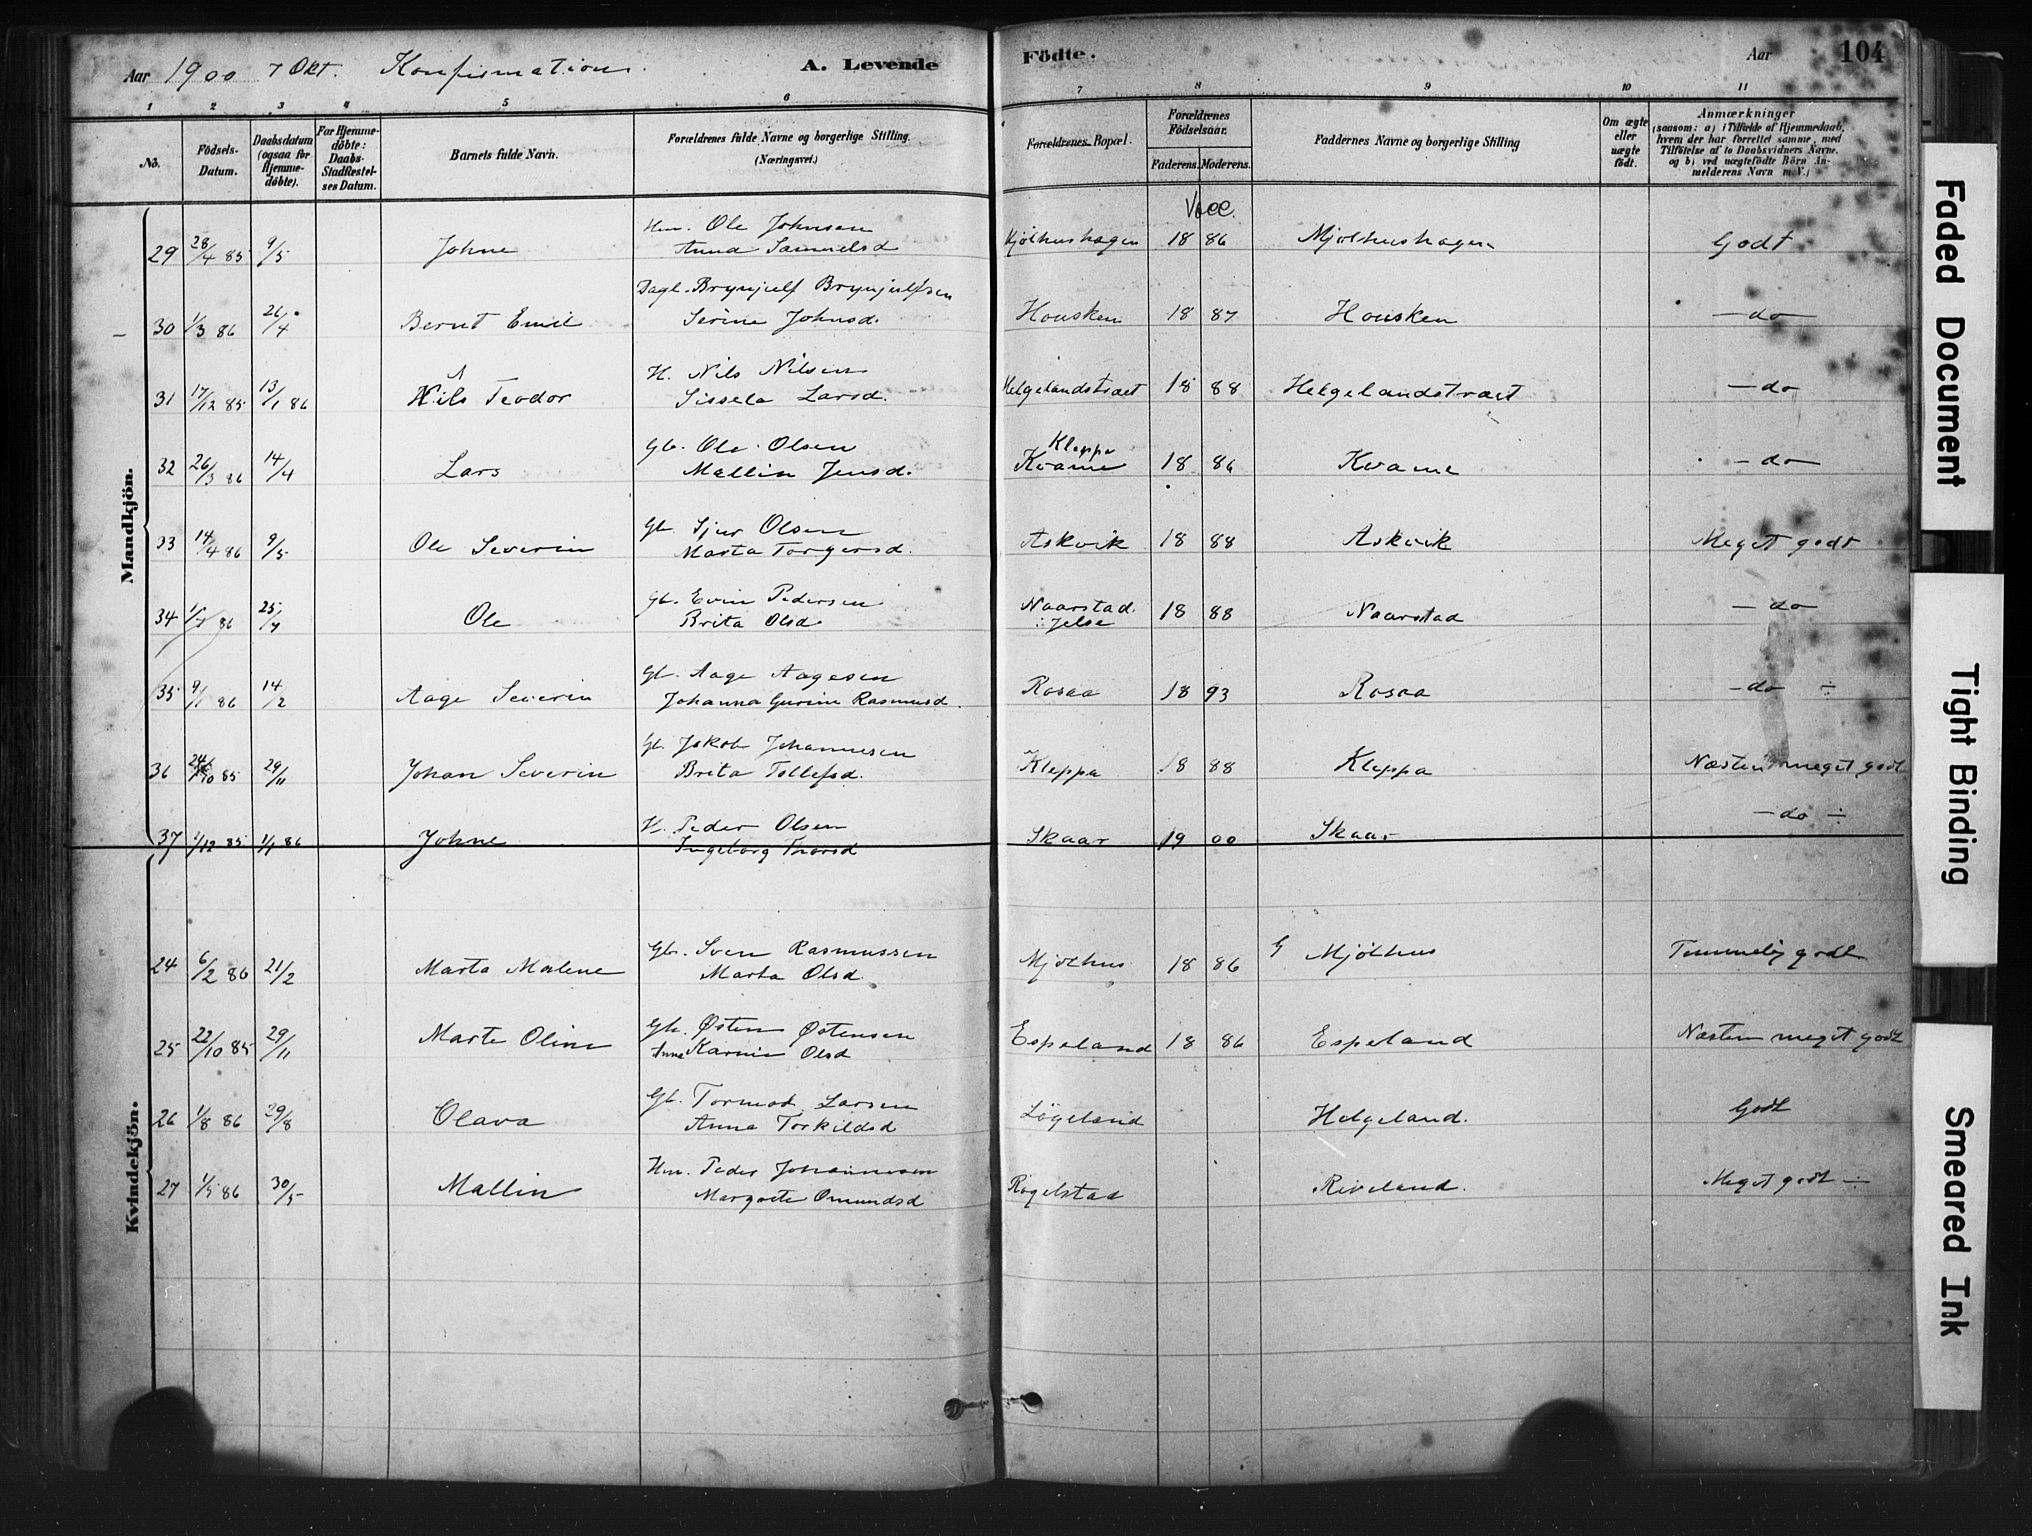 Aar 1900 7 Okt. Konfirmation. A. Levende Födte. Aar 104
1 2 3 4 5 6 7 8 9 10 11
No. Födsels-Datum. Daabsdatum (ogsaa for Hjemmedöbte). For Hjemmedöbte: Daabs-Stadfæstelses Datum. Barnets fulde Navn. Forældrenes fulde Navne og borgerlige Stilling. (Næringsvei.) Forældrenes Bopæl. Forældrenes Födselsaar. Faderens. Moderens. Faddernes Navne og borgerlige Stilling Om ægte eller uægte födt. Anmærkninger (saasom: a) i Tilfælde af Hjemmedaab, hvem der har forrettet samme, med Tilföielse af to Daabsvidners Navne. og b) ved uægtefödte Börn Anmelderens Navn m. V.)
Vacc.
Mandkjön.
29 28/4 85 9/5 Johne Hm. Ole Johnsen
Anna Samuelsd Mjølhushagen 18 86 Mjølhushagen Godt
30 1/3 86 26/4 Bernt Emil Dagl. Brynjulf Brynjulfsen
Serine Johnsd. Housken 18 87 Housken - do -
31 17/12 85 13/1 86 Nils Teodor H. Nils Nilsen
Sissela Larsd. Helgelandstræet 18 88 Helgelandstræet - do
32 26/3 86 14/4 Lars Gb. Ole Olsen
Mallin Jensd. Kleppe
Kvame 18 86 Kvame - do
33 14/4 86 9/5 Ole Severin Gb. Sjur Olsen
Marta Torgersd. Askvik 18 88 Askvik Meget godt
34 86 25/7 Ole Gb. Evin Pedersen
Brita Olsd. Naarstad
i Jelse 18 88 Naarstad - do
35 9/1 86 14/2 Aage Severin Gb. Aage Aagesen
Johanna Gurine Rasmusd. Rosaa 18 93 Rosaa - do ÷
36 24/10 85 29/11 Johan Severin Gb. Jakob Johannesen
Brita Tollefsd. Kleppa 18 88 Kleppa Næsten meget godt
37 1/12 85 1/1 86 Johne H. Peder Olsen
Ingeborg Thorsd Skaar 19 00 Skaar - do ÷
Kvindekjön.
24 6/2 86 21/2 Marta Malene Gb. Sven Rasmussen
Marta Olsd. Mjølhus 18 86 G Mjølhus Temmelig godt
25 22/10 85 29/11 Marte Oline Gb. Østen Østensen
Anna Karine Olsd Espeland 18 86 Espeland Næsten meget godt
26 1/8 86 29/8 Olava Gb. Tormod Larsen
Anna Torkildsd Løgeland Helgeland. Godt
27 1/5 86 30/5 Mallin Hm. Peder Johannesen
Margrete Omundsd Rogelstad Riveland. Meget godt ÷
Faded Document
Tight Binding
Smeared Ink